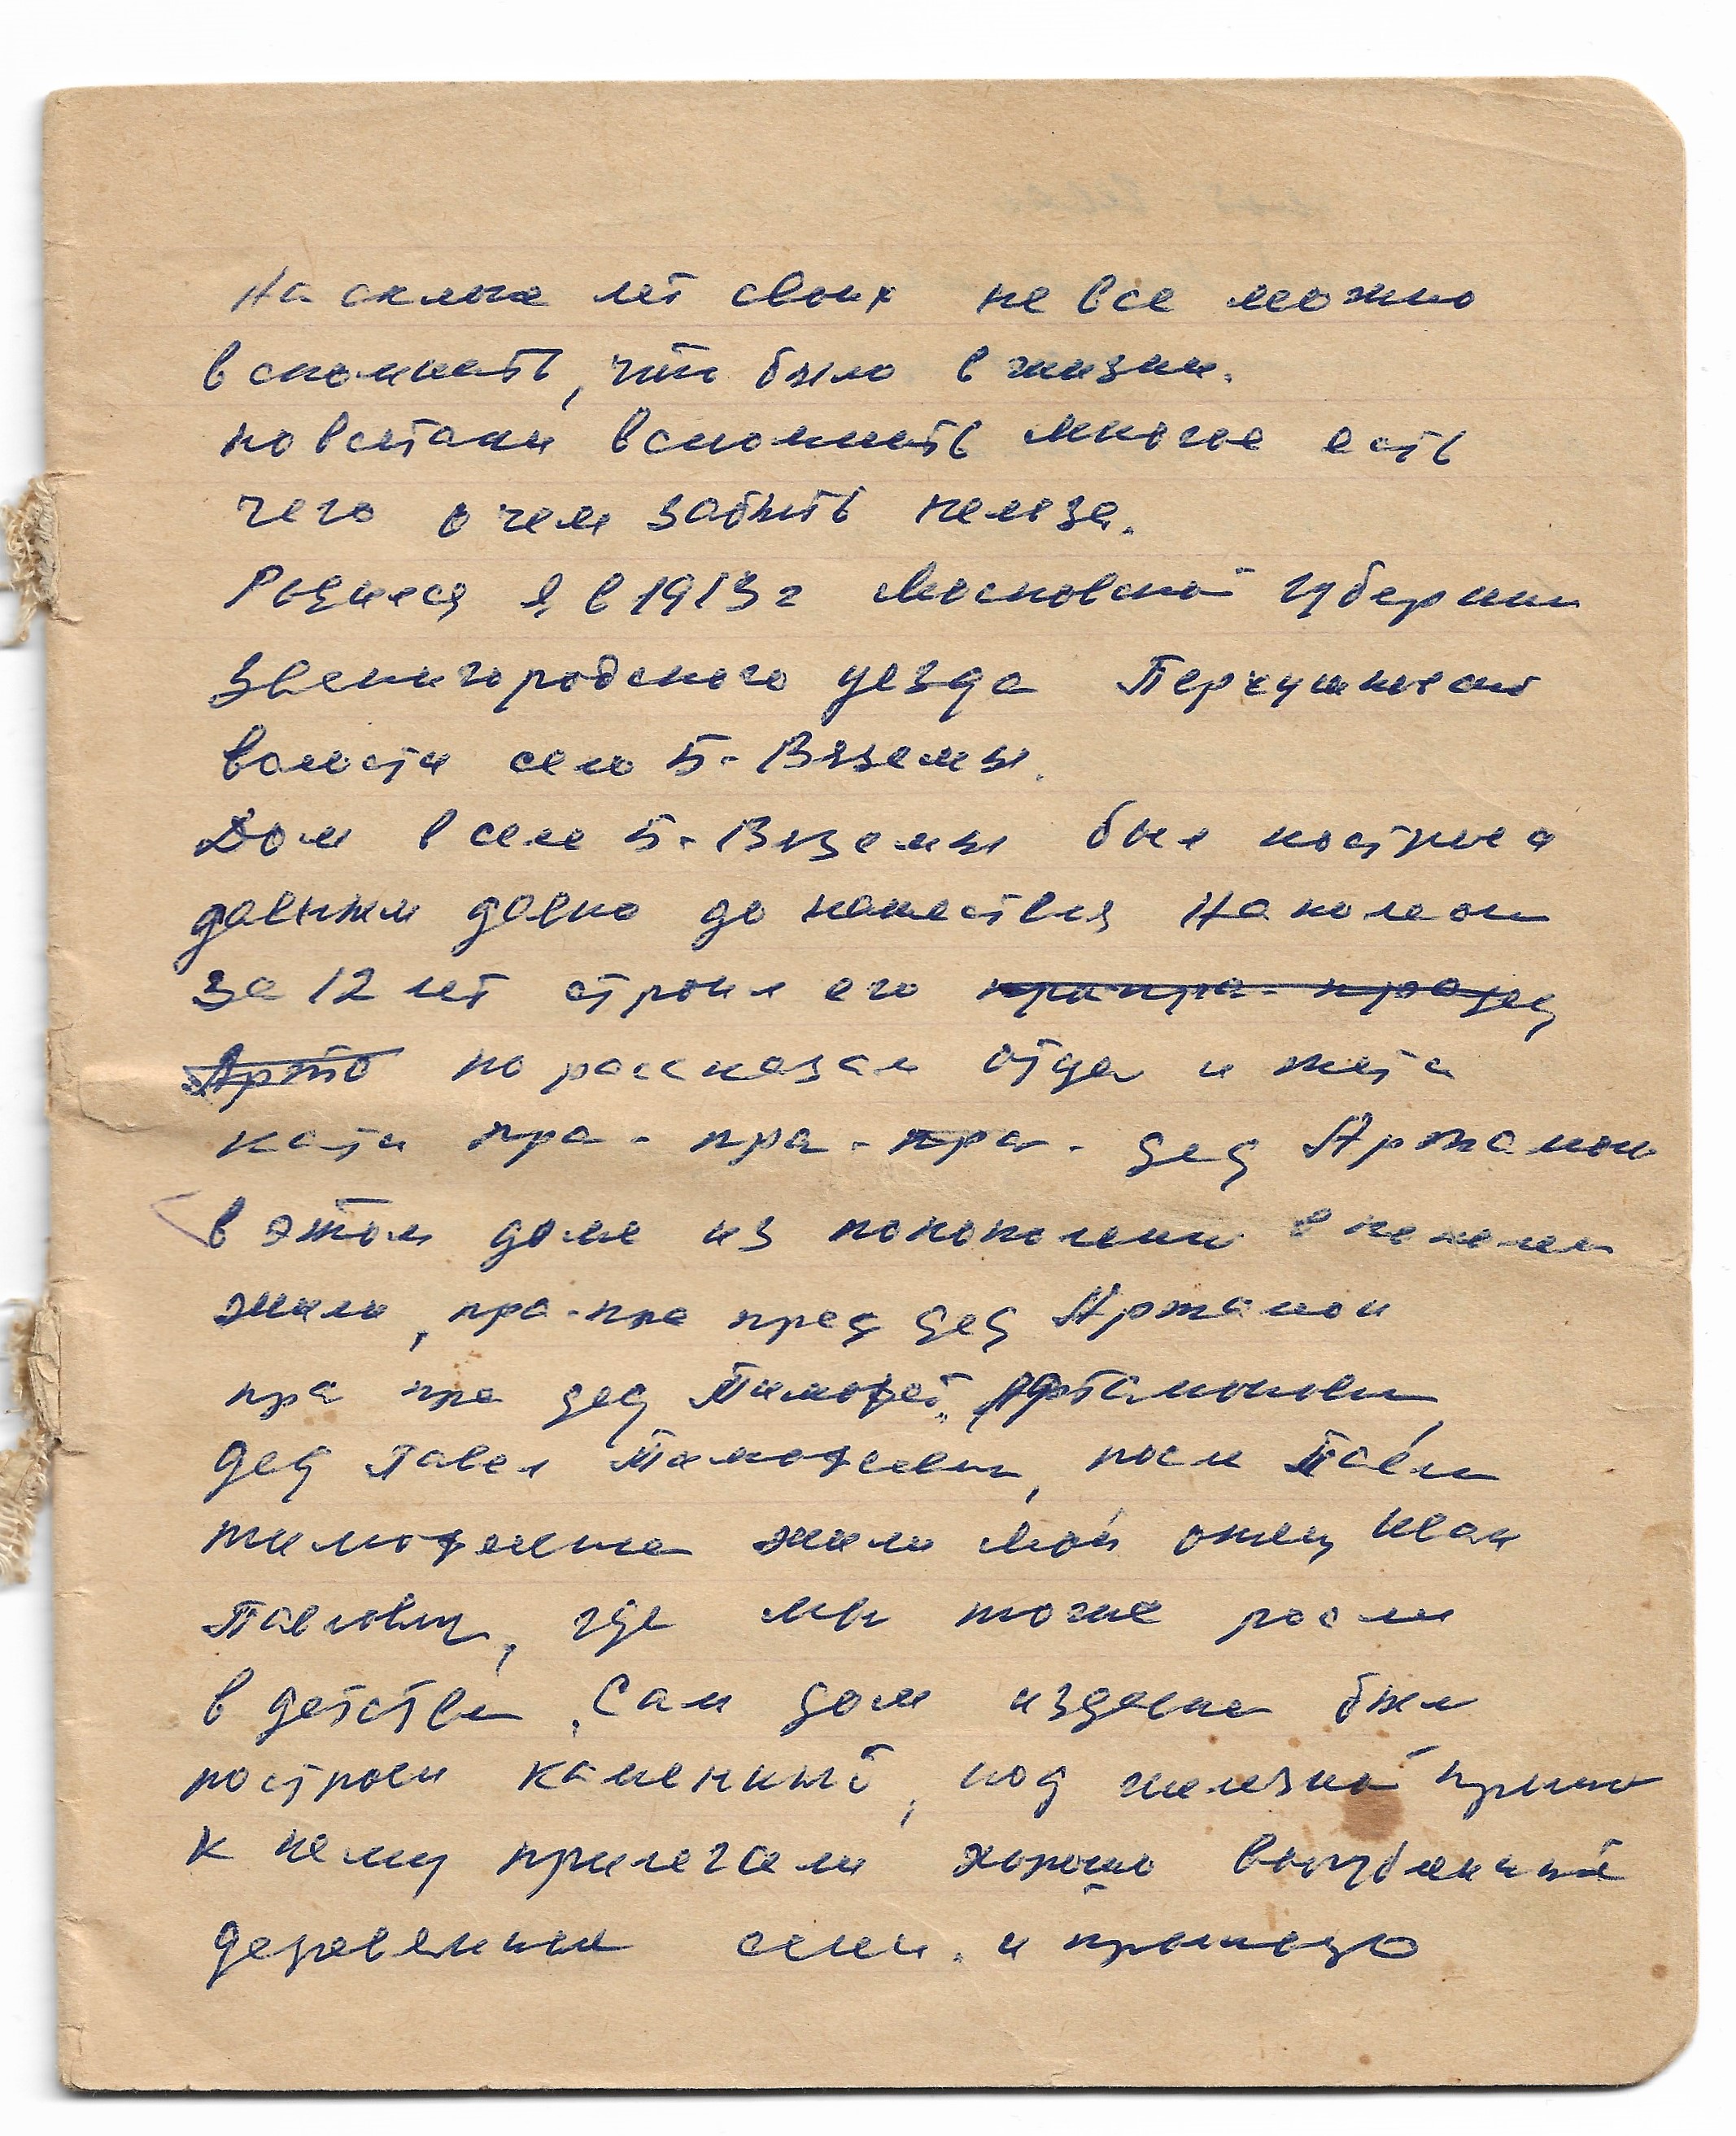 На склоне лет своих не все можно
вспомнить, что было в жизни.
но всетаки вспомнить многое есть
чего о чем забыть нельзя.
Родился я в 1913 г Московской губернии
Звенигородского уезда Перхушковской
волости село Б-Вяземы.
Дом в селе Б-Вяземы был построен
давным давно до нашествия Наполеон
за 12 лет строил его прапра-прадед
Арто по рассказам отца и тета
Кати пра-пра-пра-дед Артамон
в этом доме из поколения в поколен
жили, пра-пра пред дед Артамон
пра пра дед Тимофей Артамонович,
дед Павел Тимофеевич, посл Павел
Тимофеевича жили мой отец Иван
Павлович, где мы тоже росли
в детстве. Сам дом издавна был
построен каменный, под железной крышей
к нему прилегали хорошо вырубленный
деревянные сени. и крыльцо